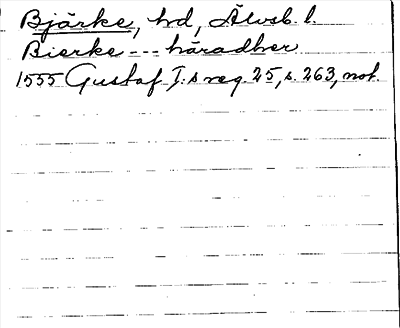 Bjärke, hd, Älvsb. l.
Bierke --- häradher
1555 Gustaf I:s reg. 25, s. 263, not.